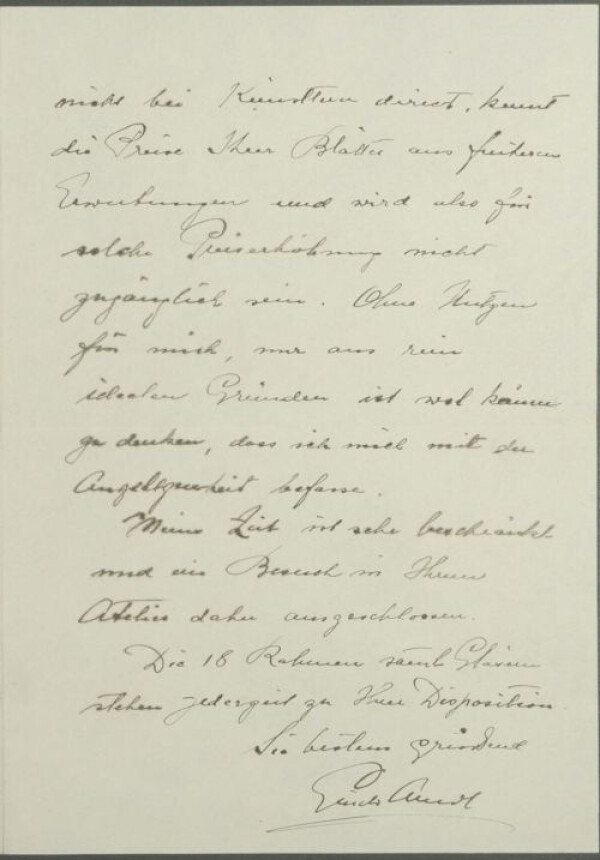 nicht bei Künstlern direct, kennt
die Preise Ihrer Blätter aus früheren
Erwerbungen und wird also für
solche Preiserhöhung nicht
zugänglich sein. Ohne Nutzen
für mich, nur aus rein
idealen Gründen ist wol kaum
zu denken, dass ich mich mit der
Angelegenheit befasse.
Meine Zeit ist sehr beschränkt
und ein Besuch in Ihrem
Atelier daher ausgeschlossen.
Die 18 Rahmen samt Gläsern
stehen jederzeit zu Ihrer Disposition.
Sie bestens grüssend
Guido Arnot